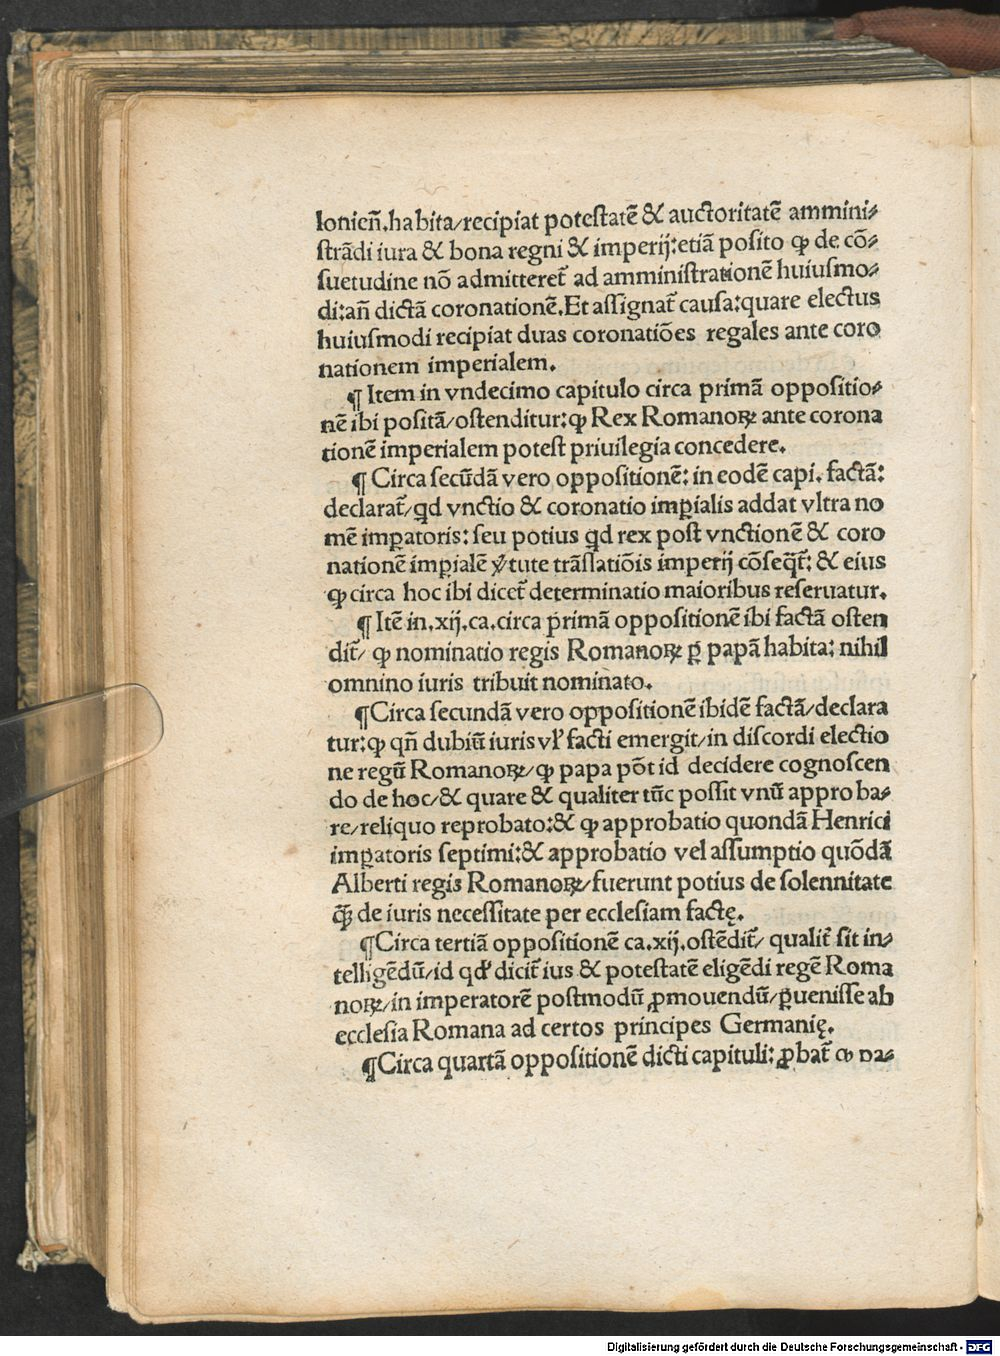 lonieñ.habita/recipiat potestatē & auctoritatē ammini⸗
strādi iura & bona regni & imperij:etiā posito ꝙ de cō⸗
suetudine nō admitteret̄ ad amministrationē huiusmo⸗
di:añ dictā coronationē.Et assignat̄ causa:quare electus
huiusmodi recipiat duas coronatiōes regales ante coro
nationem imperialem.
¶ Item in vndecimo capitulo circa primā oppositio⸗
nē ibi positā/ostenditur:ꝙ Rex Romanoꝝ ante corona
tionē imperialem potest priuilegia concedere.
¶ Circa secūdā vero oppositionē: in eodē capi. factā:
declarat̄/ qd vnctio & coronatio imꝑialis addat vltra no
mē imꝑatoris: seu potius qd rex post vnctionē & coro
nationē imꝑialē v̄tute trāslatiōis imperij cōseqt̄: & eius
ꝙ circa hoc ibi dicet̄ determinatio maioribus reseruatur.
¶ Itē in.xij.ca.circa primā oppositionē ibi factā osten
dit̄/ ꝙ nominatio regis Romanoꝝ ꝑ papā habita: nihil
omnino iuris tribuit nominato.
¶Circa secundā vero oppositionē ibidē factā/declara
tur:ꝙ qñ dubiū iuris vł facti emergit/in discordi electio
ne regū Romanoꝝ/ꝙ papa pōt id decidere cognoscen
do de hoc/& quare & qualiter tūc possit vnū approba⸗
re/reliquo reprobato:& ꝙ approbatio quondā Henrici
imꝑatoris septimi:& approbatio vel assumptio quōdā
Alberti regis Romanoꝝ/fuerunt potius de solennitate
q̄ꝫ de iuris necessitate per ecclesiam factę.
¶Circa tertiā oppositionē ca.xij.ostēdit̄/ qualit̄ sit in⸗
telligēdū/id qď dicit̄ ius & potestatē eligēdi regē Roma
noꝝ/in imperatorē postmodū ꝓmouendū/ꝑuenisse ab
ecclesia Romana ad certos principes Germanię.
¶Circa quartā oppositionē dicti capituli: ꝓbat̄ ꝙ pa⸗
Digitalisierung gefördert durch die Deutsche Forschungsgemeinschaft - DFG